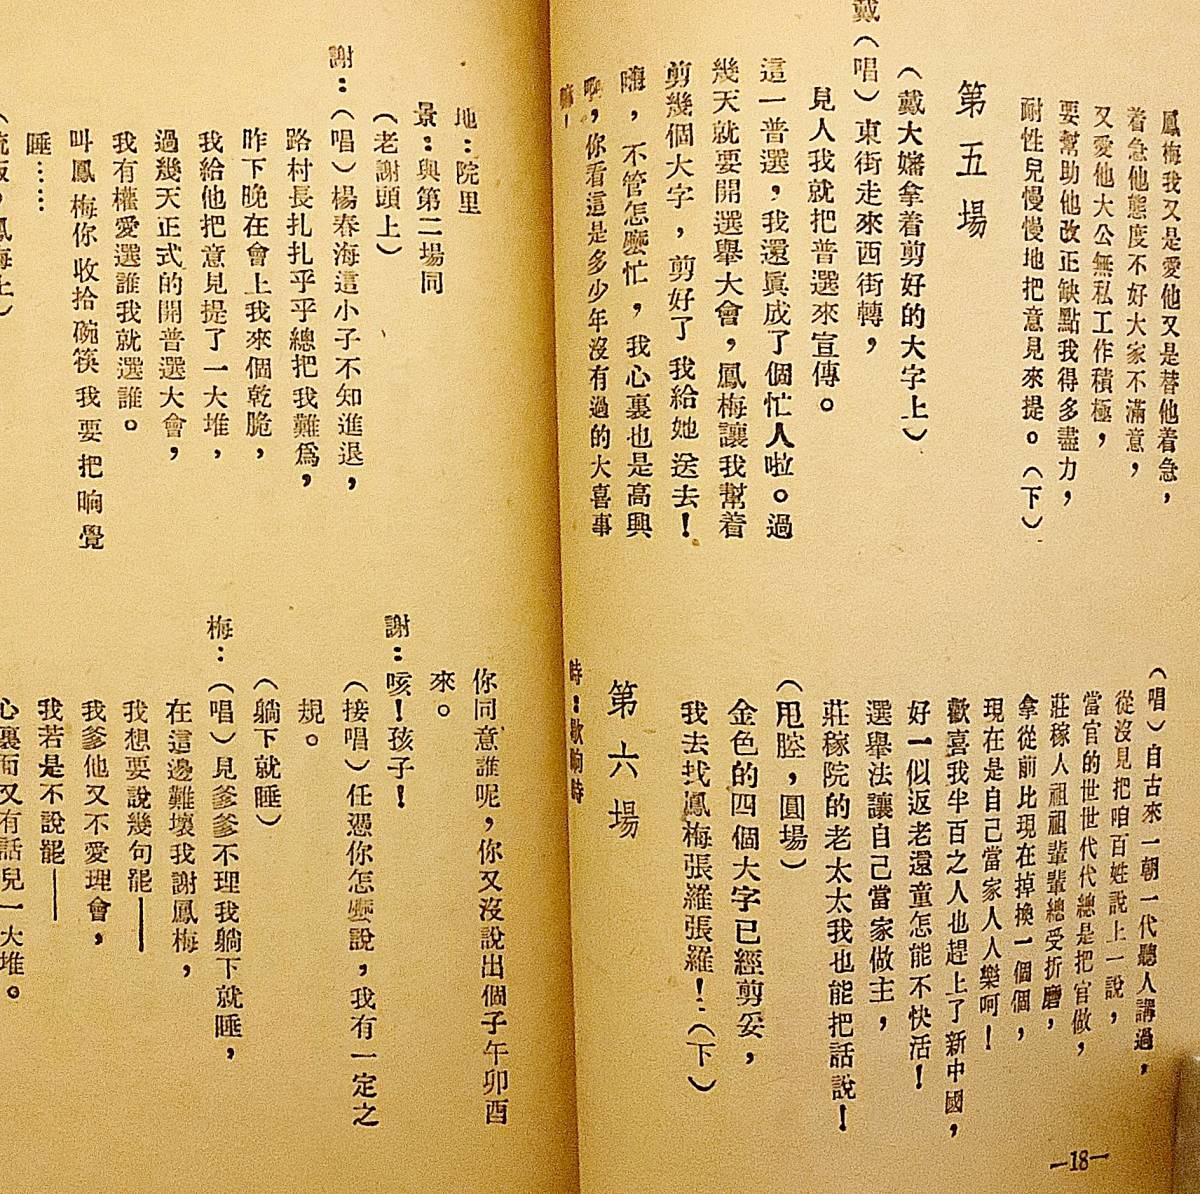 鳳梅我又是愛他又是替他着急，
着急他態度不好大家不滿意，
又愛他大公無私工作積極，
要幫助他改正缺點我得多盡力，
耐性兒慢慢地把意見來提。（下）
第五場
（戴大嬸拿着剪好的大字上）
戴（唱）東街走來西街轉，
見人我就把普選來宣傳。
這一普選，我還眞成了個忙人啦。過
幾天就要開選舉大會，鳳梅讓我幫着
剪幾個大字，剪好了我給她送去！
嗨，不管怎麼忙，我心裏也是高興
啊，你看這是多少年沒有過的大喜事
嘛！
（唱）自古來一朝一代聽人講過，
從沒見把咱百姓說上一說，
當官的世世代代總是把官做，
莊稼人祖祖輩輩總受折磨，
拿從前比現在掉換一個個，
現在是自己當家人人樂呵！
歡喜我半百之人也趕上了新中國，
好一似返老還童怎能不快活！
選舉法讓自己當家做主，
莊稼院的老太太我也能把話說！
（甩腔，圓場）
金色的四個大字已經剪妥，
我去找鳳梅張羅張羅！（下）
第六場
時：歇晌時
—18—
地：院里
景：與第二場同
（老謝頭上）
謝：（唱）楊春海這小子不知進退，
路村長扎扎乎乎總把我難爲，
昨下晚在會上我來個乾脆，
我給他把意見提了一大堆，
過幾天正式的開普選大會，
我有權愛選誰我就選誰。
叫鳳梅你收拾碗筷我要把晌覺
睡……
你同意誰呢，你又沒說出個子午卯酉
來。
謝：咳！孩子！
（接唱）任憑你怎麼說，我有一定之
規。
（躺下就睡）
梅：（唱）見爹爹不理我躺下就睡，
在這邊難壞我謝鳳梅，
我想要說幾句罷——
我爹他又不愛理會，
我若是不說罷——
心裏面又有話兒一大堆。